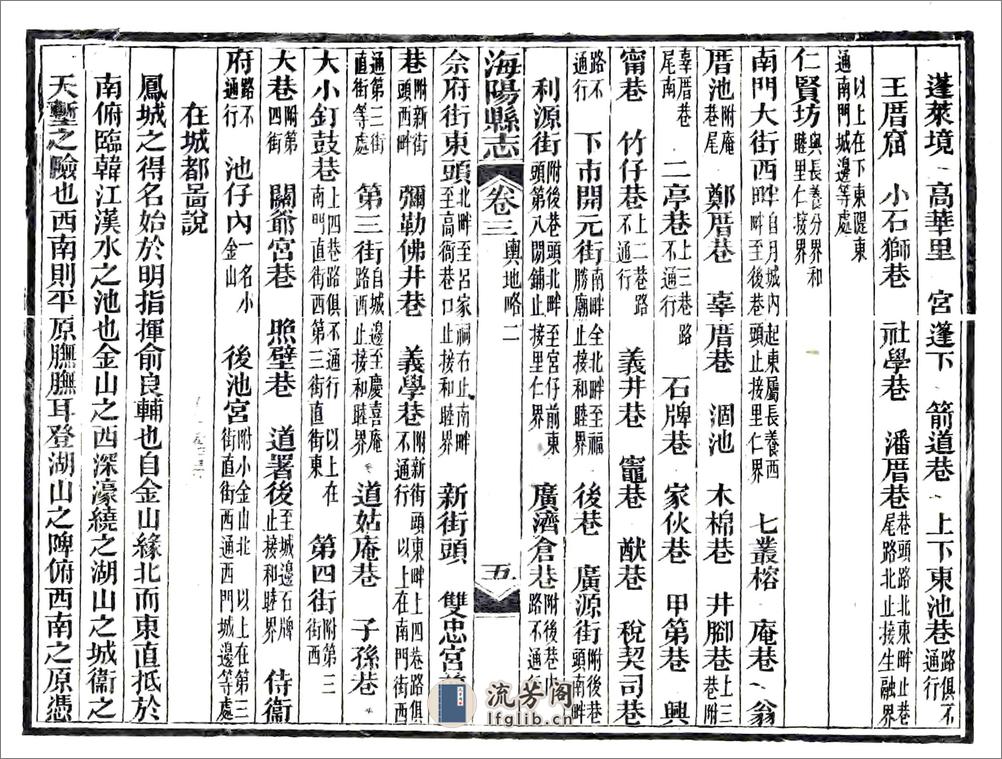 蓬萊境　高華里　宮蓬下　箭道巷　上下東池巷路俱不通行
王厝窟　小石獅巷　社學巷　潘厝巷巷頭路北東畔止巷尾路北止接生融界
以上在下東隄東通南門城邊等處
仁賢坊與長養分界和睦里仁接界
南門大街西畔自月城內起東屬長養西畔至後巷頭止接里仁界　七叢榕　庵巷　翁
厝池附庵巷尾　鄭厝巷　辜厝巷　涸池　木棉巷　井腳巷上三巷附
辜厝巷尾南　二亭巷上三巷路不通行　石牌巷　家伙巷　甲第巷　興
甯巷　竹仔巷上二巷路不通行　義井巷　竈巷　猷巷　稅契司巷
路不通行　下市開元街南畔全北畔至福勝廟止接和睦界　後巷　廣源街附後巷頭南畔
利源街附後巷頭北畔至宮仔前東頭第八間鋪止接里仁界　廣濟倉巷附後巷內路不通行
海陽縣志　卷三　輿地略二　五
佘府街東頭北畔至呂家祠石止南畔至高衙巷口止接和睦界　新街頭　雙忠宮
巷附新街頭西畔　彌勒佛井巷　義學巷附新街頭東畔上四巷路俱不通行　以上在南門街西
通第三街直街等處　第三街自城邊至慶喜庵路西止接和睦界　道姑庵巷　子孫巷
大小釘鼓巷上四巷路俱不通行　以上在南門直街西第三街直街東　第四街附第三街西
大巷附第四街　關爺宮巷　照壁巷　道署後至城邊石牌止接和睦界　侍衞
府路不通行　池仔內一名小金山　後池宮附小金山北　以上在第三街直街西通西門城邊等處
在城都啚說
鳳城之得名始於明指揮俞良輔也自金山緣北而東直抵於
南俯臨韓江漢水之池也金山之西深濠繞之湖山之城衞之
天塹之險也西南則平原膴膴耳登湖山之陴俯西南之原憑
流芳阁
lfglib.cn